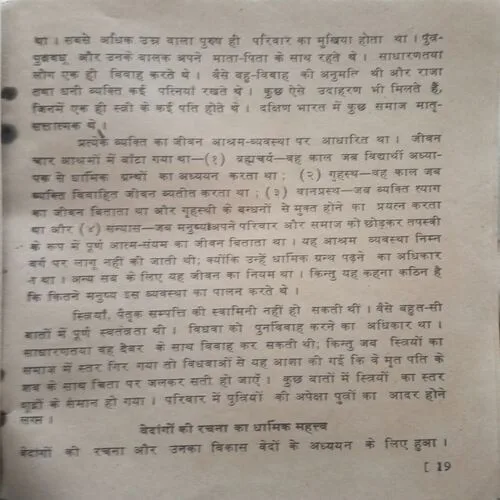 था । सबसे अधिक उम्र वाला पुरुष ही परिवार का मुखिया होता था । पुत्र-
पुत्रवधू और उनके बालक अपने माता-पिता के साथ रहते थे । साधारणतया
लोग एक ही विवाह करते थे । वैसे बहु-विवाह की अनुमति थी और राजा
तथा धनी व्यक्ति कई पत्नियाँ रखते थे । कुछ ऐसे उदाहरण भी मिलते हैं,
जिनमें एक ही स्त्री के कई पति होते थे । दक्षिण भारत में कुछ समाज मातृ-
सत्तात्मक थे ।
प्रत्येक व्यक्ति का जीवन आश्रम-व्यवस्था पर आधारित था । जीवन
चार आश्रमों में बाँटा गया था—(१) ब्रह्मचर्य—वह काल जब विद्यार्थी अध्या-
पक से धार्मिक ग्रन्थों का अध्ययन करता था ; (२) गृहस्थ—वह काल जब
व्यक्ति विवाहित जीवन व्यतीत करता था ; (३) वानप्रस्थ—जब व्यक्ति त्याग
का जीवन बिताता था और गृहस्थी के बन्धनों से मुक्त होने का प्रयत्न करता
था और (४) सन्यास—जब मनुष्य अपने परिवार और समाज को छोड़कर तपस्वी
के रूप में पूर्ण आत्म-संयम का जीवन बिताता था । यह आश्रम व्यवस्था निम्न
वर्ग पर लागू नहीं की जाती थी; क्योंकि उन्हें धार्मिक ग्रन्थ पढ़ने का अधिकार
न था । अन्य सब के लिए यह जीवन का नियम था । किन्तु यह कहना कठिन है
कि कितने मनुष्य इस व्यवस्था का पालन करते थे ।
स्त्रियाँ, पैतृक सम्पत्ति की स्वामिनी नहीं हो सकती थीं । वैसे बहुत-सी
बातों में पूर्ण स्वतंत्रता थी । विधवा को पुनर्विवाह करने का अधिकार था ।
साधारणतया वह देवर के साथ विवाह कर सकती थी; किन्तु जब स्त्रियों का
समाज में स्तर गिर गया तो विधवाओं से यह आशा की गई कि वे मृत पति के
शव के साथ चिता पर जलकर सती हो जाएँ । कुछ बातों में स्त्रियों का स्तर
शूद्रों के समान हो गया । परिवार में पुत्रियों की अपेक्षा पुत्रों का आदर होने
लगा ।
वेदांगों की रचना का धार्मिक महत्त्व
वेदांगों की रचना और उनका विकास वेदों के अध्ययन के लिए हुआ ।
[ 19